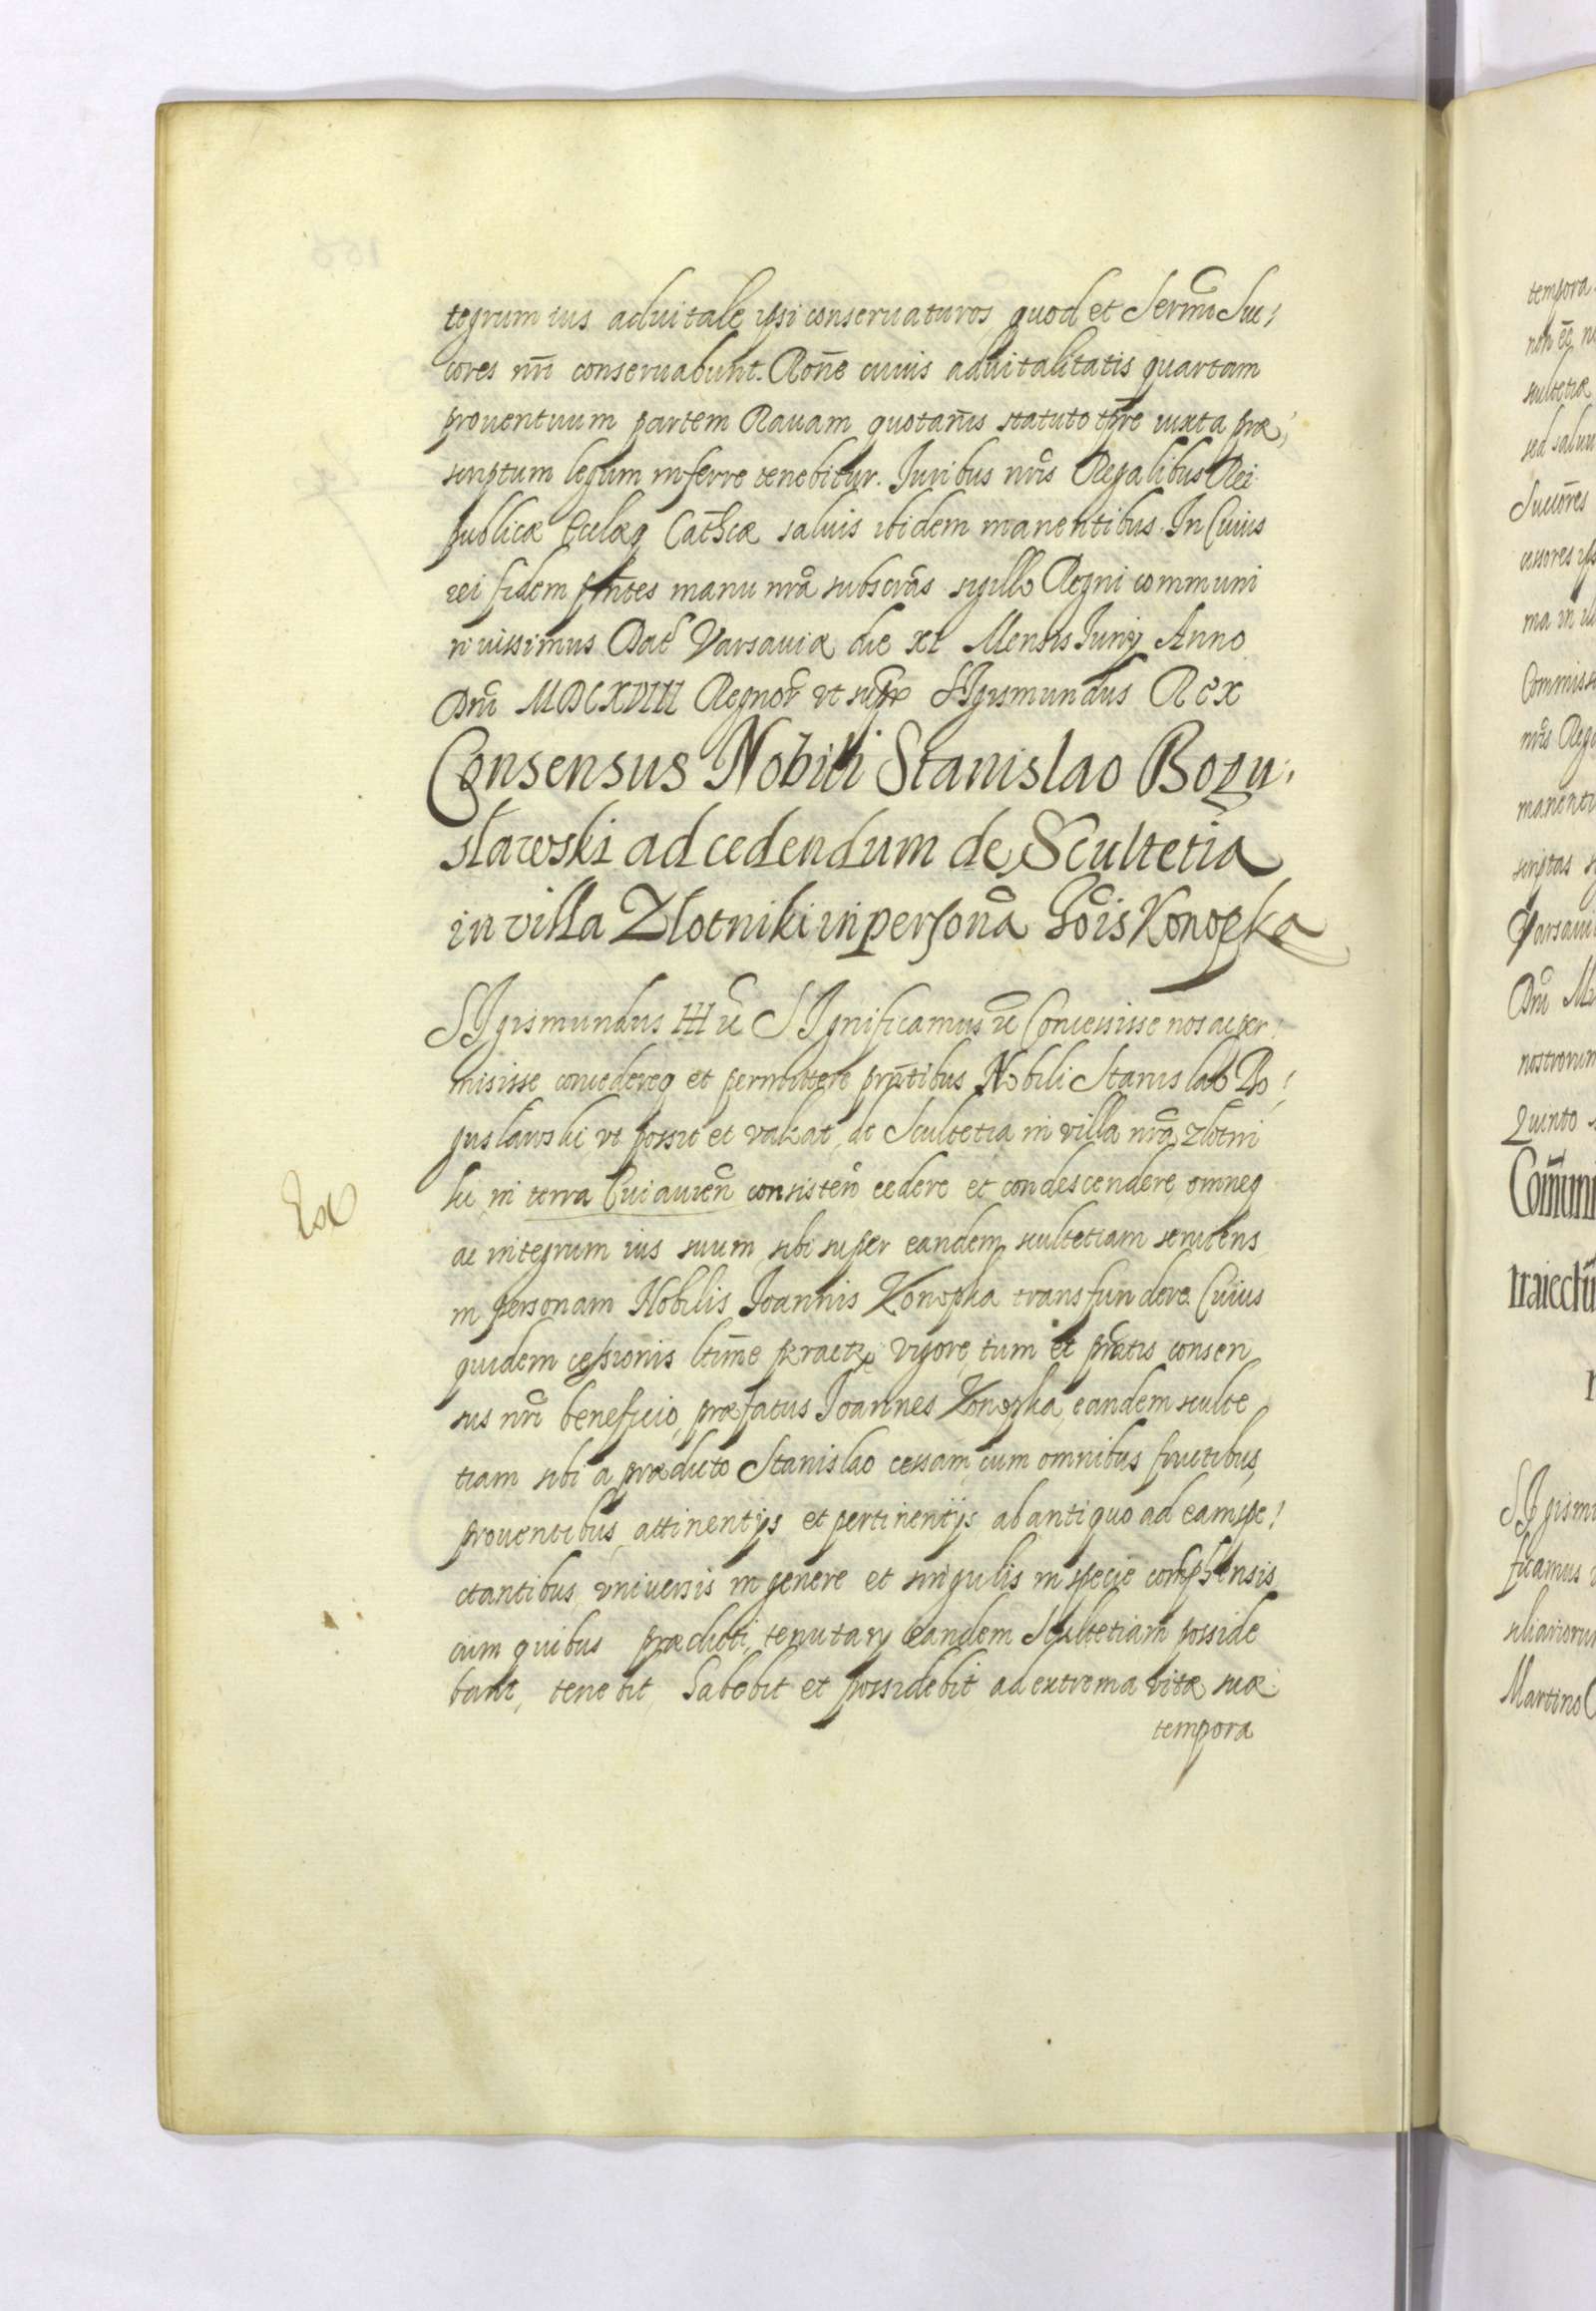 tegrum ius aduitale ipsi conseruaturos quod et Sermi Suc,
cores nr̃i conseruabunt. Rone cuius aduitalitatis quartam
prouentuum partem Rauam quotañis statuto tp̃re iuxta præ,
scriptum legum inferre tenebitur. Iuribus nr̃is Regalibus Rei
publicæ Ecclæq Cathcæ saluis ibidem manentibus. In Cuius
rei fidem pñtes manu nrã subscrãs sigillo Regni communi
ri iussimus Dat Varsauiæ die XI Mensis Iunij Anno
Dñi MDCXVIII Regnor ut supr SIgismundus Rex
Consensus Nobili Stanislao Bogu,
sławski ad cedendum de Scultetia
in villa Zlotniki in personã Jois Konopka
SIgismundus III ec̃ SIgnificamus ec̃ Concessisse nos ac per,
misisse concedereq et permittere pñtibus Nobili Stanislao Bo,
gusławski vt possit et valeat de Scultetia in villa nrã zlotni
ki in terra Cuiauien consisten cedere et condescendere omneq
ac integrum ius suum sibi super eandem scultetiam seruiens
in personam Nobilis Ioannis Konopka transfundere. Cuius
quidem cessionis ltĩme peractæ vigore, tum et pñtis consen
sus nr̃i beneficio, præfatus Ioannes Konopka, eandem sculte
tiam sibi a prædicto Stanislao cessam, cum omnibus fructibus,
prouentibus, attinentijs et pertinentijs ab antiquo ad eam spe,
ctantibus, vniuersis in genere et singulis in specie comp̃hensis
cum quibus prædicti, tenutarij eandem Scultetiam posside
bant, tenebit, habebit et possidebit ad extrema vitæ suæ
tempora
Ex